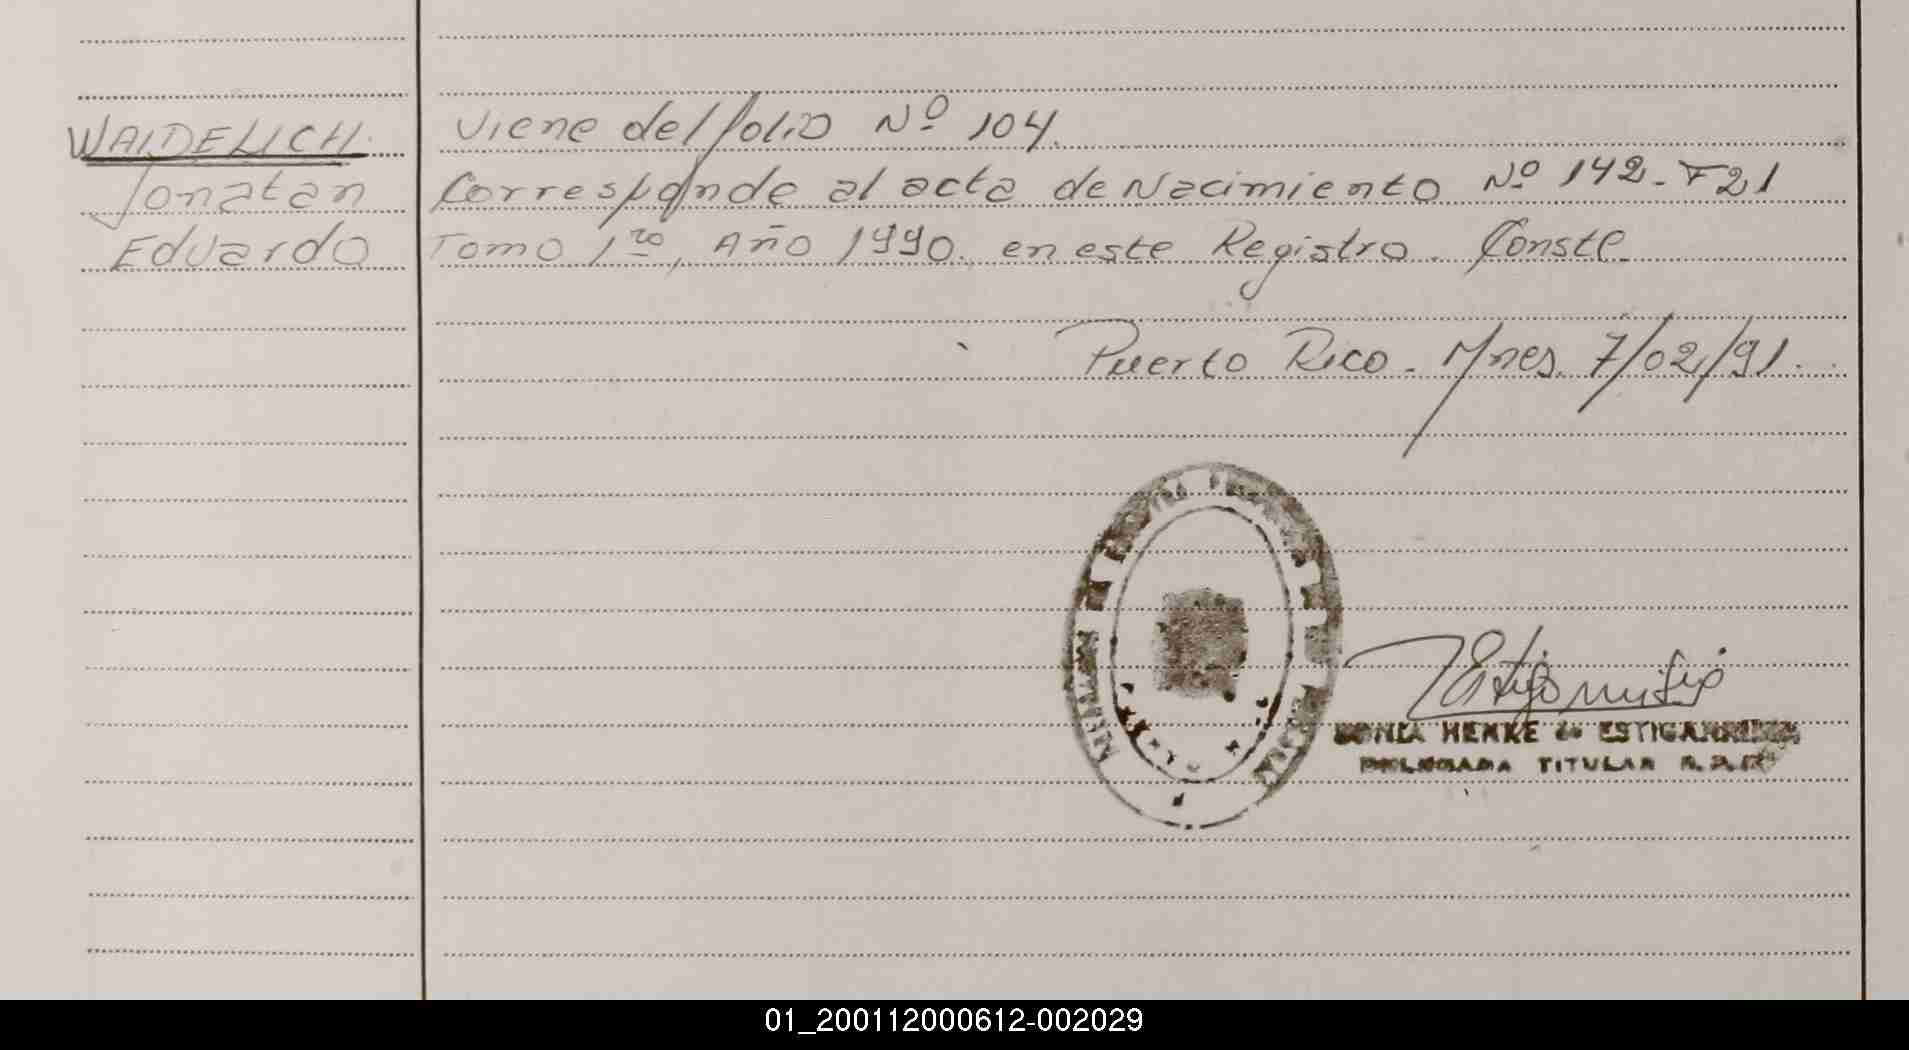 WAIDELICH.
Jonatan
Eduardo
Viene del folio Nº 104.
Corresponde al acta de Nacimiento Nº 142-F21
Tomo 1ro, Año 1990. en este Registro. Conste.
Puerto Rico. Mnes. 7/02/91.
SONIA HENKE de ESTIGARRIBIA
DELEGADA TITULAR R.P.
01_200112000612-002029